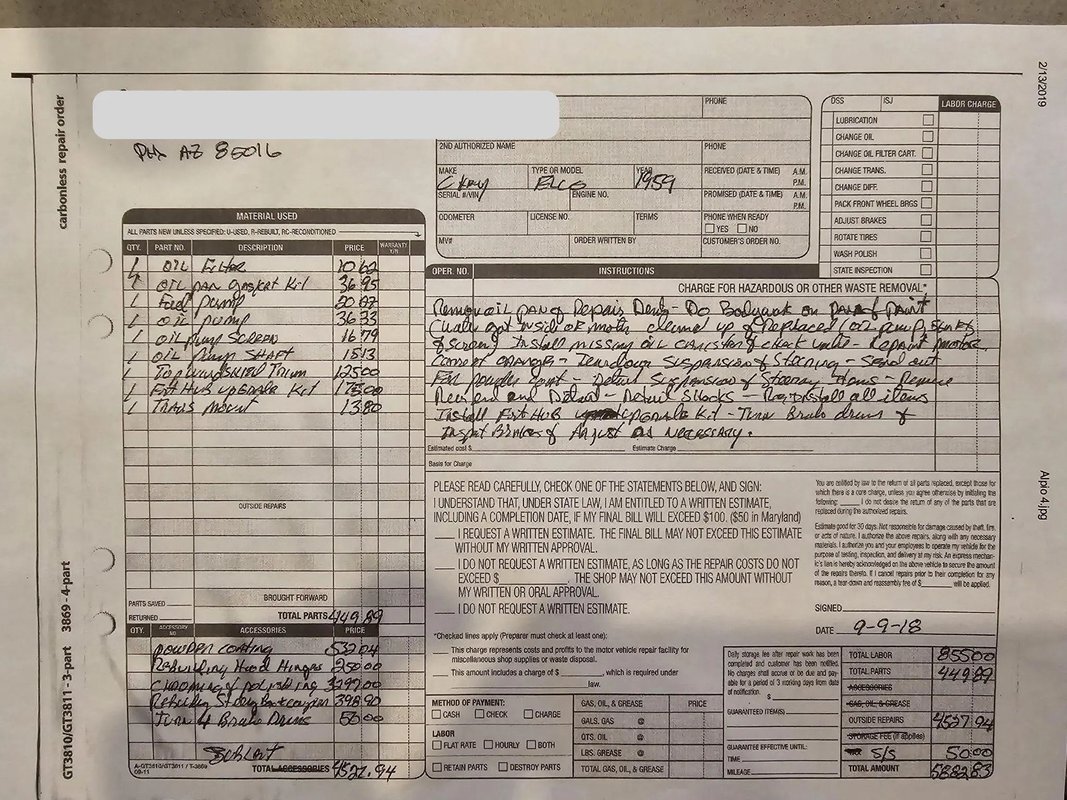 2/13/2019
carbonless repair order
GT3810/GT3811 - 3-part 3869 - 4-part
Alpio 4.jpg
PHX AZ 85016
PHONE
2ND AUTHORIZED NAME
PHONE
MAKE
TYPE OR MODEL
YEAR
RECEIVED (DATE & TIME) A.M. P.M.
Chevy
Elco
1959
SERIAL #/VIN
ENGINE NO.
PROMISED (DATE & TIME) A.M. P.M.
ODOMETER
LICENSE NO.
TERMS
PHONE WHEN READY
YES NO
MV#
ORDER WRITTEN BY
CUSTOMER'S ORDER NO.
DSS ISJ LABOR CHARGE
LUBRICATION
CHANGE OIL
CHANGE OIL FILTER CART.
CHANGE TRANS.
CHANGE DIFF.
PACK FRONT WHEEL BRGS
ADJUST BRAKES
ROTATE TIRES
WASH POLISH
STATE INSPECTION
MATERIAL USED
ALL PARTS NEW UNLESS SPECIFIED: U-USED, R-REBUILT, RC-RECONDITIONED
QTY. PART NO. DESCRIPTION PRICE WARRANTY Y/N
1 OIL Filter 10 62
1 OIL pan gasket Kit 36 95
1 Fuel pump 20 07
1 OIL pump 36 33
1 OIL pump SCREEN 16 79
1 OIL pump SHAFT 15 13
1 Top windshield Trim 125 00
1 Frt HUB upgrade Kit 175 00
1 Trans mount 13 80
OUTSIDE REPAIRS
PARTS SAVED
BROUGHT FORWARD
RETURNED
TOTAL PARTS 449.89
QTY. ACCESSORY NO. ACCESSORIES PRICE
powder coating 532.04
Rebuilding Hood Hinges 250.00
Chroming & polishing 3297.00
398.90
Turn 4 Brake Drums 50.00
Sublet
A-GT3810/GT3811 / T-3869
09-11
TOTAL ACCESSORIES 4527.94
OPER. NO. INSTRUCTIONS
CHARGE FOR HAZARDOUS OR OTHER WASTE REMOVAL*
Remove oil pan & Repair Dents - Do Bodywork on pan & paint
inside of motor cleaned up & Replaced (oil pump,
& screen) Install missing oil canister & check valve - Repaint motor
Correct oranges - Teardown Suspension & Steering - Send out
For powder coat - Detail Suspension & Steering Items - Remove
Rear end and Detail - Detail Shocks - Reinstall all items
Install Frt HUB Upgrade Kit - Turn Brake drums &
Inspect Brakes & Adjust as necessary.
Estimated cost $ Estimate Charge
Basis for Charge
PLEASE READ CAREFULLY, CHECK ONE OF THE STATEMENTS BELOW, AND SIGN:
I UNDERSTAND THAT, UNDER STATE LAW, I AM ENTITLED TO A WRITTEN ESTIMATE,
INCLUDING A COMPLETION DATE, IF MY FINAL BILL WILL EXCEED $100. ($50 in Maryland)
I REQUEST A WRITTEN ESTIMATE. THE FINAL BILL MAY NOT EXCEED THIS ESTIMATE
WITHOUT MY WRITTEN APPROVAL.
I DO NOT REQUEST A WRITTEN ESTIMATE, AS LONG AS THE REPAIR COSTS DO NOT
EXCEED $ . THE SHOP MAY NOT EXCEED THIS AMOUNT WITHOUT
MY WRITTEN OR ORAL APPROVAL.
I DO NOT REQUEST A WRITTEN ESTIMATE.
*Checked lines apply (Preparer must check at least one):
This charge represents costs and profits to the motor vehicle repair facility for
miscellaneous shop supplies or waste disposal.
This amount includes a charge of $ , which is required under
law.
You are entitled by law to the return of all parts replaced, except those for
which there is a core charge, unless you agree otherwise by initialing the
following: I do not desire the return of any of the parts that are
replaced during the authorized repairs.
Estimate good for 30 days. Not responsible for damage caused by theft, fire,
or acts of nature. I authorize the above repairs, along with any necessary
materials. I authorize you and your employees to operate my vehicle for the
purpose of testing, inspection, and delivery at my risk. An express mechan-
ic's lien is hereby acknowledged on the above vehicle to secure the amount
of the repairs thereto. If I cancel repairs prior to their completion for any
reason, a tear-down and reassembly fee of $ will be applied.
SIGNED
DATE 9-9-18
METHOD OF PAYMENT:
CASH CHECK CHARGE
LABOR
FLAT RATE HOURLY BOTH
RETAIN PARTS DESTROY PARTS
GAS, OIL, & GREASE PRICE
GALS. GAS @
QTS. OIL @
LBS. GREASE @
TOTAL GAS, OIL, & GREASE
Daily storage fee after repair work has been
completed and customer has been notified.
No charges shall accrue or be due and pay-
able for a period of 3 working days from date
of notification. $
GUARANTEED ITEM(S)
GUARANTEE EFFECTIVE UNTIL:
TIME
MILEAGE
TOTAL LABOR 855.00
TOTAL PARTS 449.89
ACCESSORIES
GAS, OIL, & GREASE
OUTSIDE REPAIRS 4527.94
STORAGE FEE (if applies)
S/S 50.00
TOTAL AMOUNT 5882.83